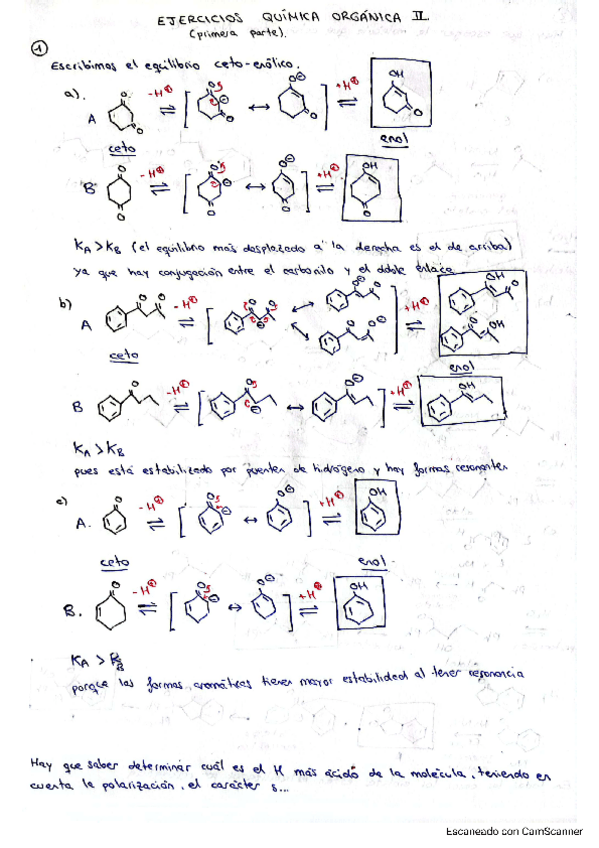 EJERCICIOS QUÍMICA ORGÁNICA II.
(primera parte).
1
Escribimos el equilibrio ceto-enólico.
a).
A
-H⊕
+H⊕
OH
O
ceto
enol
B
-H⊕
+H⊕
OH
O
KA > KB (el equilibrio más desplazado a la derecha es el de arriba)
ya que hay conjugación entre el carbonilo y el doble enlace
b)
A
-H⊕
+H⊕
ceto
enol
B
-H⊕
+H⊕
OH
KA > KB
pues está estabilizado por puentes de hidrógeno y hay formas resonantes
c)
A.
-H⊕
+H⊕
OH
ceto
enol.
B.
-H⊕
+H⊕
OH
KA > KB
porque las formas aromáticas tienen mayor estabilidad al tener resonancia
Hay que saber determinar cuál es el H más ácido de la molécula, teniendo en
cuenta la polarización, el carácter s...
Escaneado con CamScanner